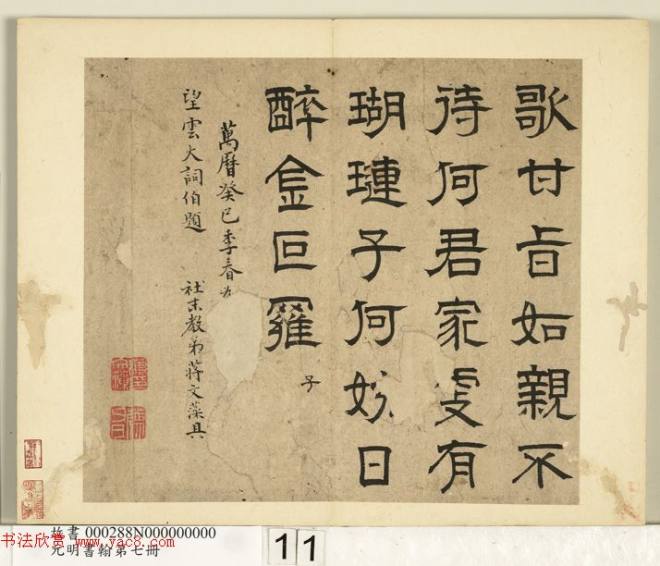 歌甘旨如親不
待何君家有
瑚璉子何妨日
醉金叵羅
子
萬曆癸巳季春為
望雲大詞伯題
社末教弟蔣文藻具
故書 000288N000000000
元明書翰第七冊
书法欣赏 www.yac8.com
11